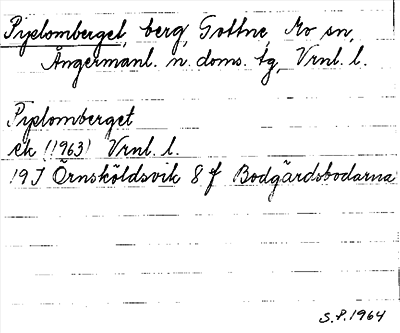 Pyplomberget, berg, Gottne, Mo sn,
Ångermanl. n. doms. tg, Vrnl. l.
Pyplomberget
ek (1963) Vrnl. l.
19J Örnsköldsvik 8 f Bodgårdsbodarna
S.P. 1964